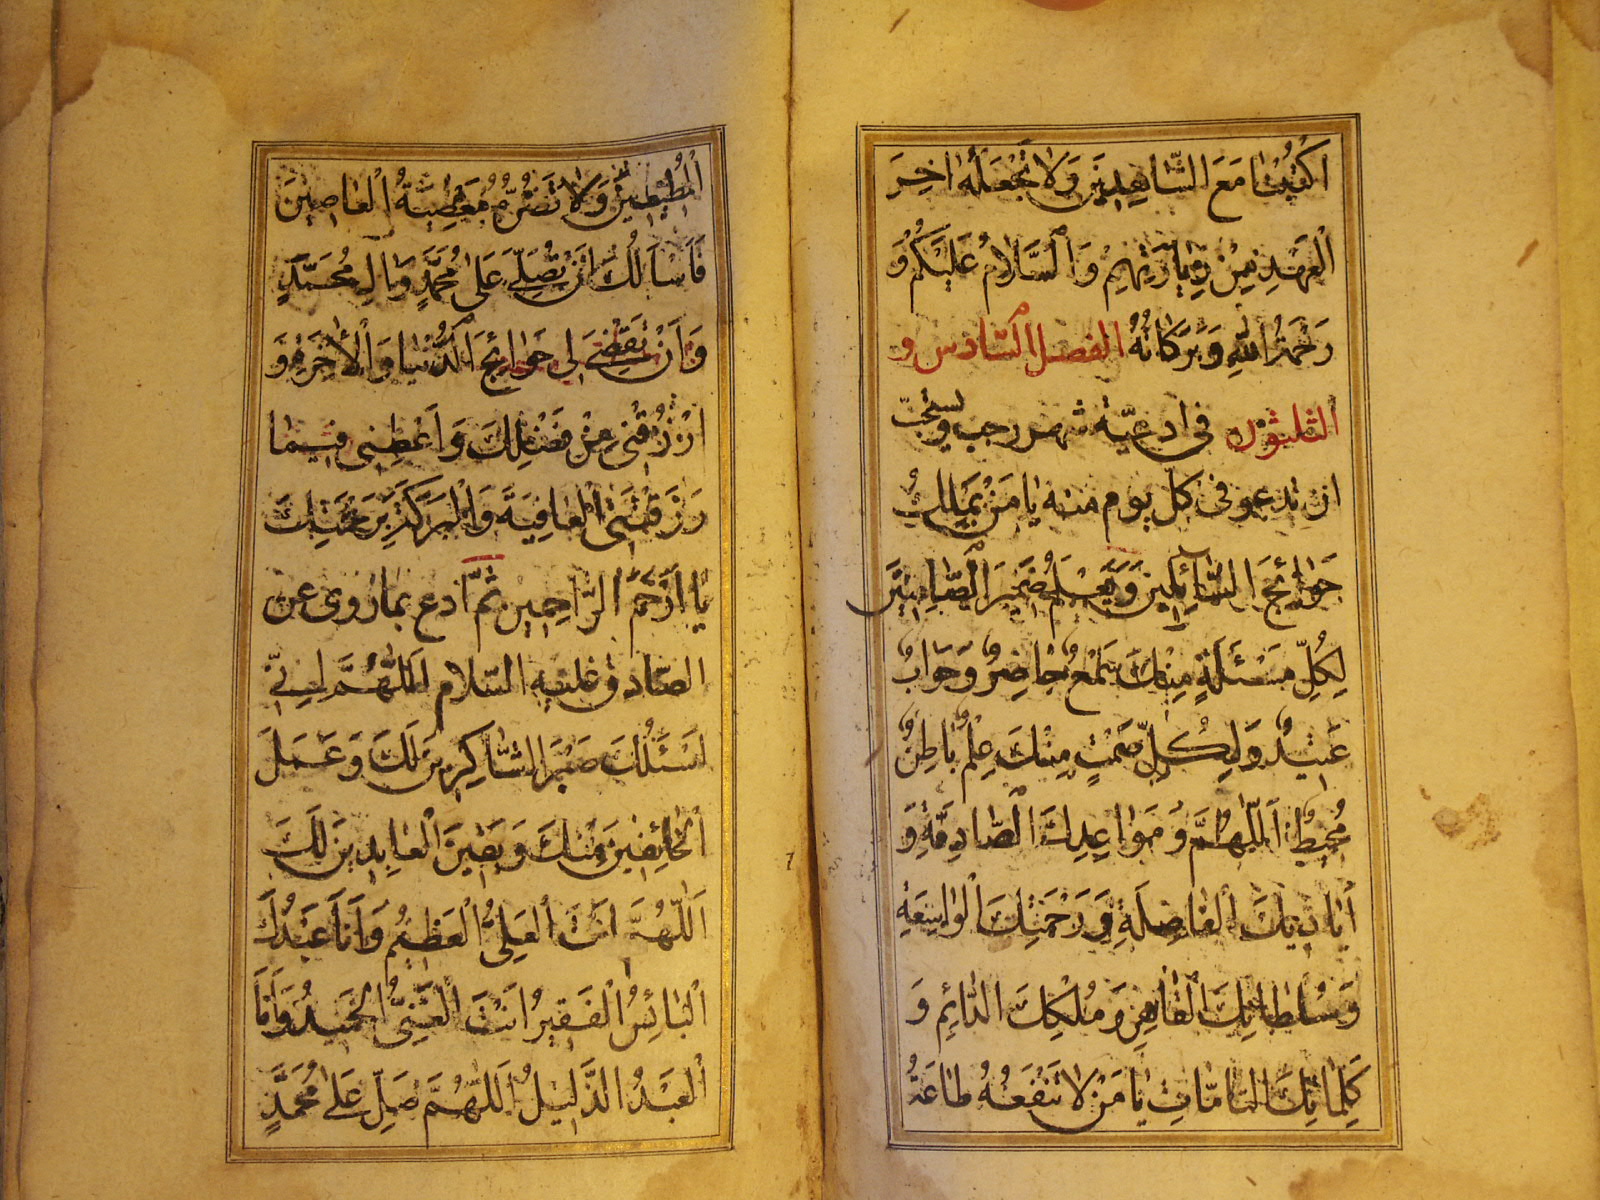 اكْتُبْنٰا مَعَ الشّٰاهِدِينَ وَلاٰ تَجْعَلْهُ اٰخِرَ
الْعَهْدِ مِنْ زِيٰارَتِهِمْ وَالسَّلاٰمُ عَلَيْكُمْ وَ
رَحْمَةُ اللّٰهِ وَبَرَكٰاتُهُ الفصل السّادس و
الثلثون فى ادعيّة شهر رجب ويستحبّ
ان تدعو فى كل يوم منه يٰا مَنْ يَمْلِكُ
حَوٰائِجَ السّٰائِلِينَ وَيَعْلَمُ ضَمِيرَ الصّٰامِتِينَ
لِكُلِّ مَسْئَلَةٍ مِنْكَ سَمْعٌ حٰاضِرٌ وَجَوٰابٌ
عَتِيدٌ وَلِكُلِّ صَمْتٍ مِنْكَ عِلْمٌ بٰاطِنٌ
مُحِيطٌ اَللّٰهُمَّ وَمَوٰاعِدِكَ الصّٰادِقَةِ وَ
أَيٰادِيكَ الْفٰاضِلَةِ وَرَحْمَتِكَ الْوٰاسِعَةِ
وَسُلْطٰانِكَ الْقٰاهِرِ وَمُلْكِكَ الدّٰائِمِ وَ
كَلِمٰاتِكَ التّٰامّٰاتِ يٰا مَنْ لاٰ تَنْفَعُهُ طٰاعَةُ
الْمُطِيعِينَ وَلاٰ تَضُرُّهُ مَعْصِيَةُ الْعٰاصِينَ
فَأَسْأَلُكَ اَنْ تُصَلِّيَ عَلىٰ مُحَمَّدٍ وَاٰلِ مُحَمَّدٍ
وَاَنْ تَقْضِيَ لِي حَوٰائِجَ الدُّنْيٰا وَالْأٰخِرَةِ وَ
ارْزُقْنِي مِنْ فَضْلِكَ وَاَعْطِنِي فِيمٰا
رَزَقْتَنِي الْعٰافِيَةَ وَالْبَرَكَةَ بِرَحْمَتِكَ
يٰا اَرْحَمَ الرّٰاحِمِينَ ثمّ ادع بما روى عن
الصّادق عليه السّلام اَللّٰهُمَّ اِنِّي
اَسْئَلُكَ صَبْرَ الشّٰاكِرِينَ لَكَ وَعَمَلَ
الْخٰائِفِينَ مِنْكَ وَيَقِينَ الْعٰابِدِينَ لَكَ
اَللّٰهُمَّ اَنْتَ الْعَلِيُّ الْعَظِيمُ وَاَنَا عَبْدُكَ
الْبٰائِسُ الْفَقِيرُ اَنْتَ الْغَنِيُّ الْحَمِيدُ وَاَنَا
الْعَبْدُ الذَّلِيلُ اَللّٰهُمَّ صَلِّ عَلىٰ مُحَمَّدٍ